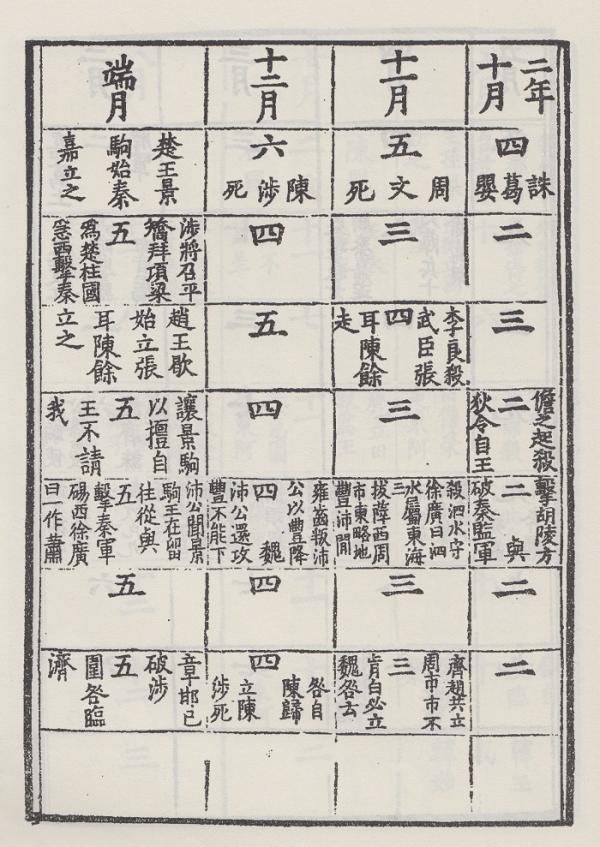 二年
十月
四
誅葛嬰
二
三
儋之起殺
二
狄令自王
擊胡陵方
二與
破秦監軍
二
二
十一月
五
周文死
三
李良殺
武臣張
四
耳陳餘
走
三
殺泗水守
徐廣曰泗
水屬東海
三
拔薛西周
市東略地
豐沛閒
三
齊趙共立
周市市不
三
肯曰必立
魏咎云
十二月
六
陳涉死
四
五
四
雍齒叛沛
公以豐降
四魏
沛公還攻
豐不能下
四
咎自
陳歸
四
立陳
涉死
端月
楚王景
駒始秦
嘉立之
涉將召平
矯拜項梁
五
爲楚柱國
急西擊秦
趙王歇
始立張
耳陳餘
立之
讓景駒
以擅自
五
王不請
我
沛公聞景
駒王在留
往從與
五
擊秦軍
碭西徐廣
曰作蕭
五
章邯已
破涉
五
圍咎臨
濟